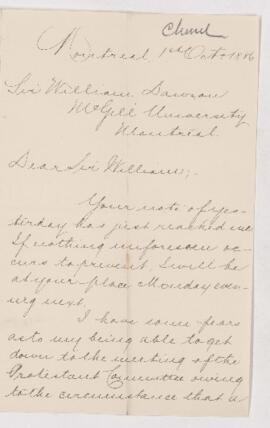 Montreal, 1st Oct. 1886
Sir William Dawson
McGill University
Montreal
Dear Sir William;-
Your note of yes-
terday has just reached me
If nothing unforeseen oc-
curs to prevent, I will be
at your place Monday even-
ing next.
I have some fears
as to my being able to get
down to the meeting of the
Protestant Committee owing
to the circumstance that a